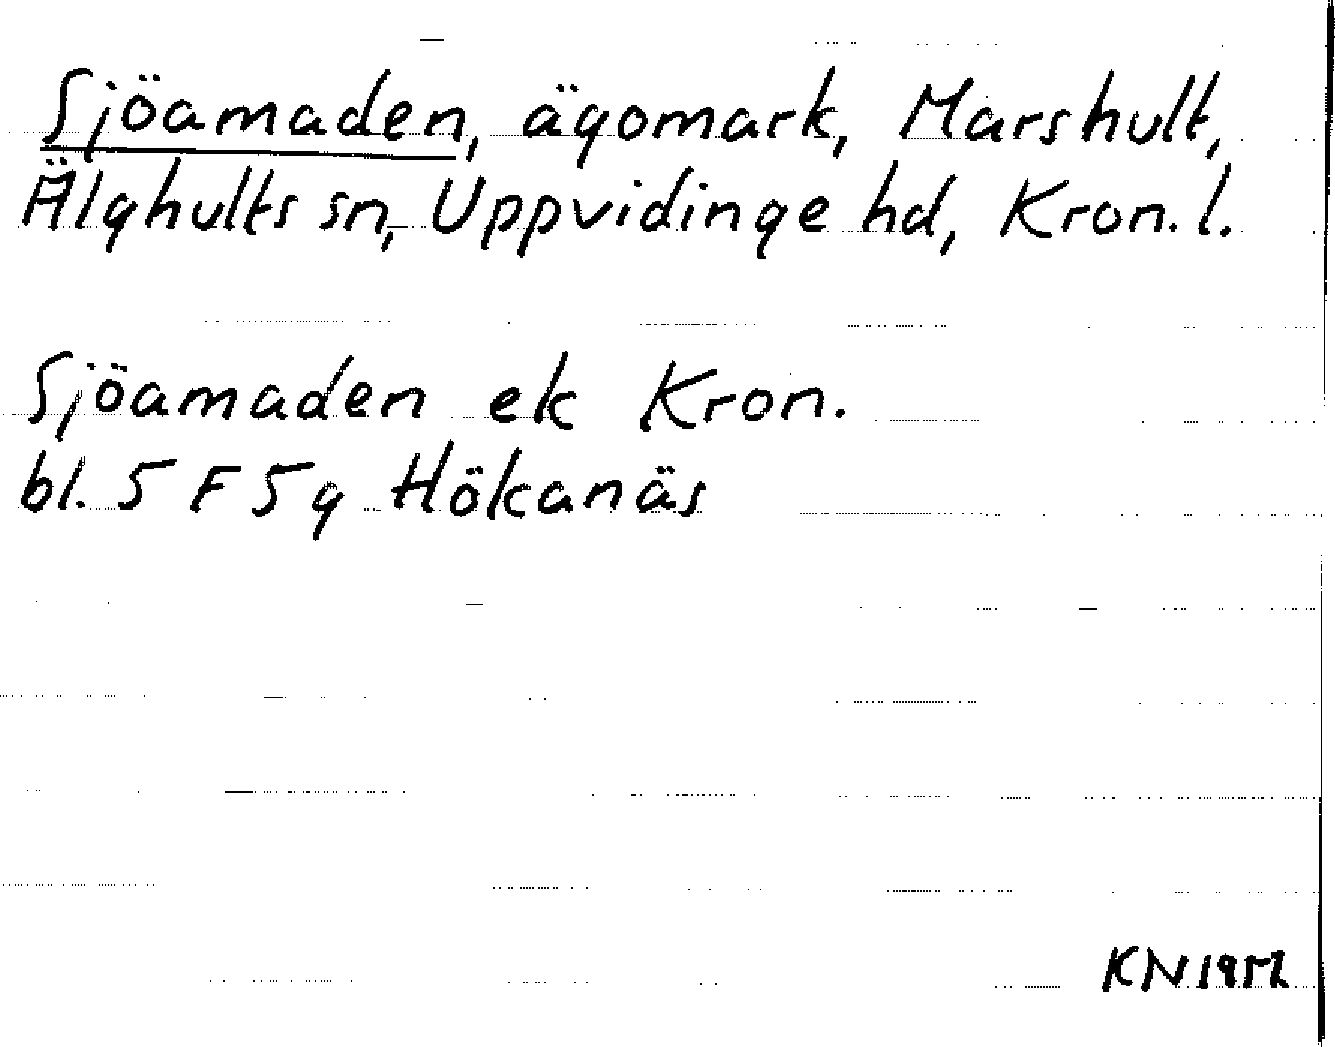 Sjöamaden, ägomark, Marshult,
Älghults sn, Uppvidinge hd, Kron. l.
Sjöamaden ek Kron.
bl. 5 F 5 g Hökanäs
KN 1952